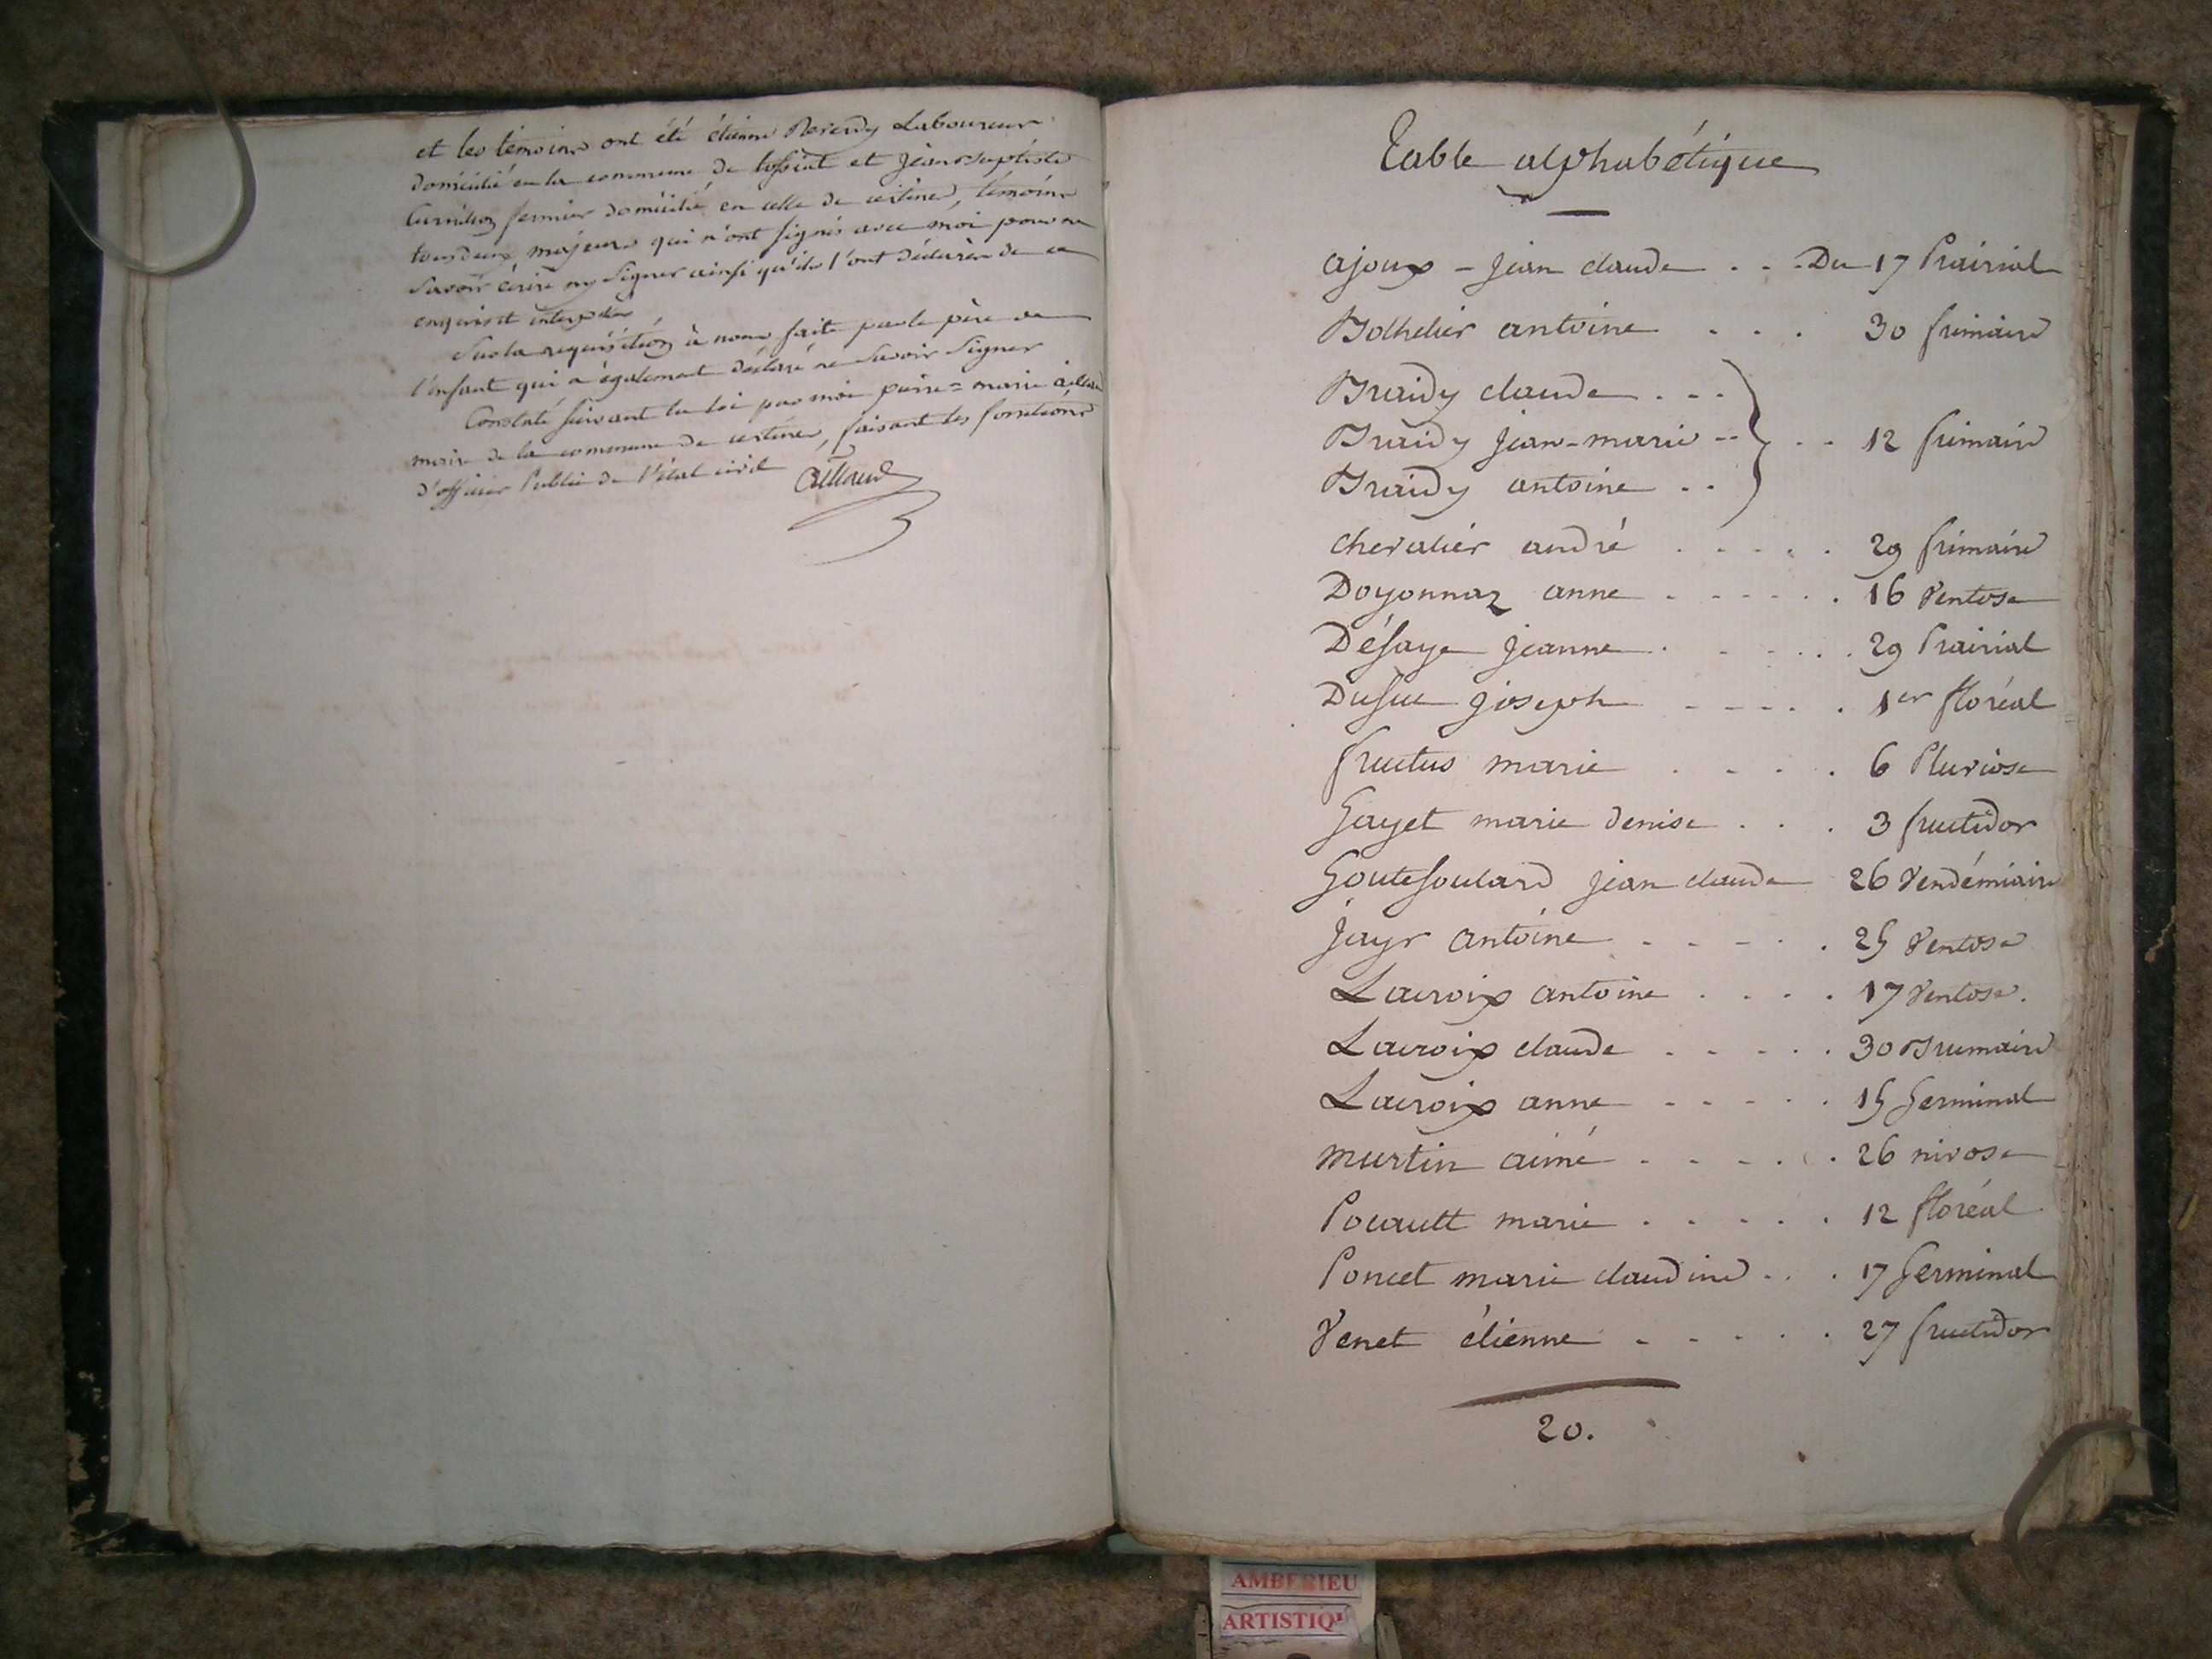 et les témoins ont été étienne Revendy Laboureur
domicilié en la commune de et jean-baptiste
fermier domicilié en celle de certines, témoins
tous deux majeurs qui n'ont signés avec moi pour ne
savoir écrire ny signer ainsi qu'ils l'ont déclarés de ce
enquis et interpellés
Sur la requisition à nous faite par le père de
l'enfant qui a également déclaré ne savoir signer
Constaté suivant la loi par moi pierre=marie aillaud
maire de la commune de certines, faisant les fonctions
d'officier Public de l'état civil aillaud
Table alphabétique
ajoux - jean claude . . . Du 17 Prairial
Bolhelier antoine . . . 30 frimaire
Braidy claude . . .
Braidy jean-marie - - . . 12 frimaire
Braidy antoine . .
chevalier andré . . . . . 29 frimaire
Doyonnaz anne . . . . . . 16 Ventose
Désaye jeanne . . . . . 29 Prairial
Dusuc joseph . . . . . 1er floréal
fructus marie . . . . 6 Pluviose
Gayet marie denise . . . 3 fructidor
Goutesoulard jean claude 26 Vendémiaire
Jayr antoine . . . . . 25 Ventose
Lacroix antoine . . . . 17 Ventose.
Lacroix claude . . . . . 30 Brumaire
Lacroix anne . . . . . 15 Germinal
murtin aimé . . . . . 26 nivose
Pocault marie . . . . . 12 floréal
Poncet marie claudine . . . 17 Germinal
Venet étienne . . . . . 27 fructidor
20.
AMBERIEU
ARTISTIQU